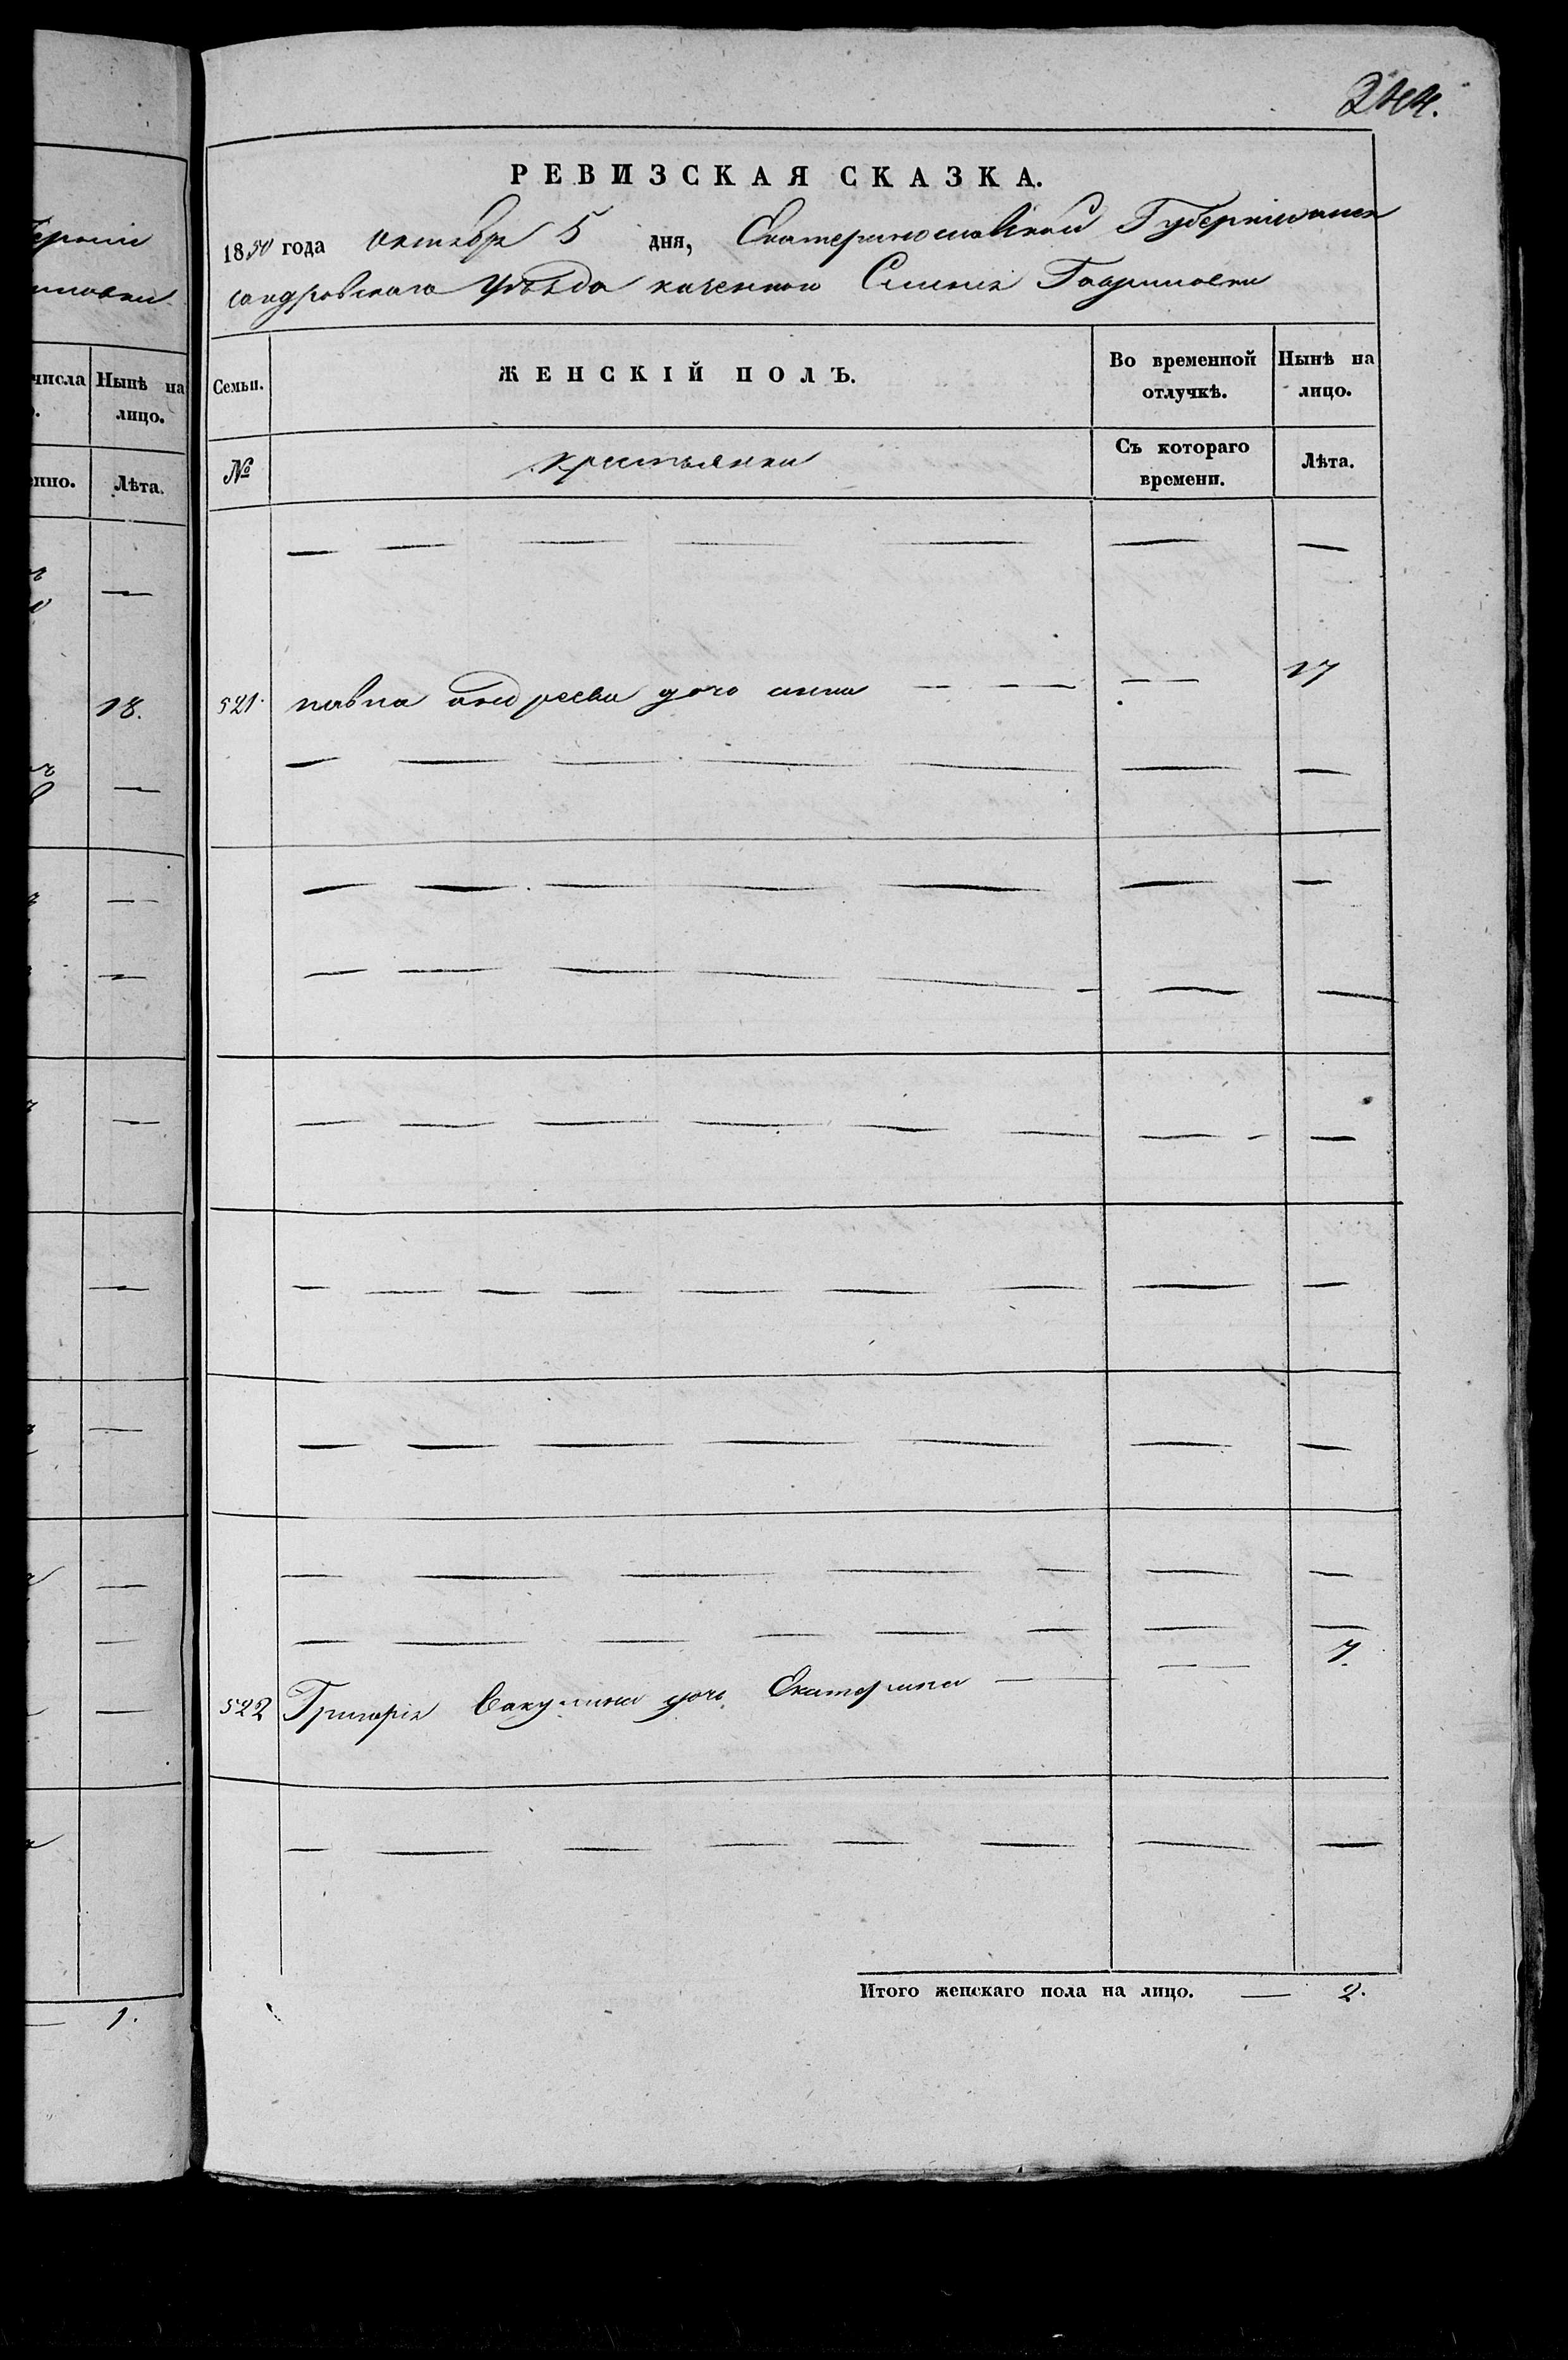 244.
РЕВИЗСКАЯ СКАЗКА.
1850 года октября 5 дня, Екатеринославской Губернии алек
сандровского уѣзда казенного Селения Гавриловки
Семьи. ЖЕНСКІЙ ПОЛЪ. Во временной отлучкѣ. Нынѣ на лицо.
№ крестьянки Съ котораго времени. Лѣта.
521. павла андреева дочь анна 17
522 Григорія Вакулина дочь Екатерина 7.
Итого женскаго пола на лицо. — 2.
числа Нынѣ на
лицо.
Лѣта.
18.
1.